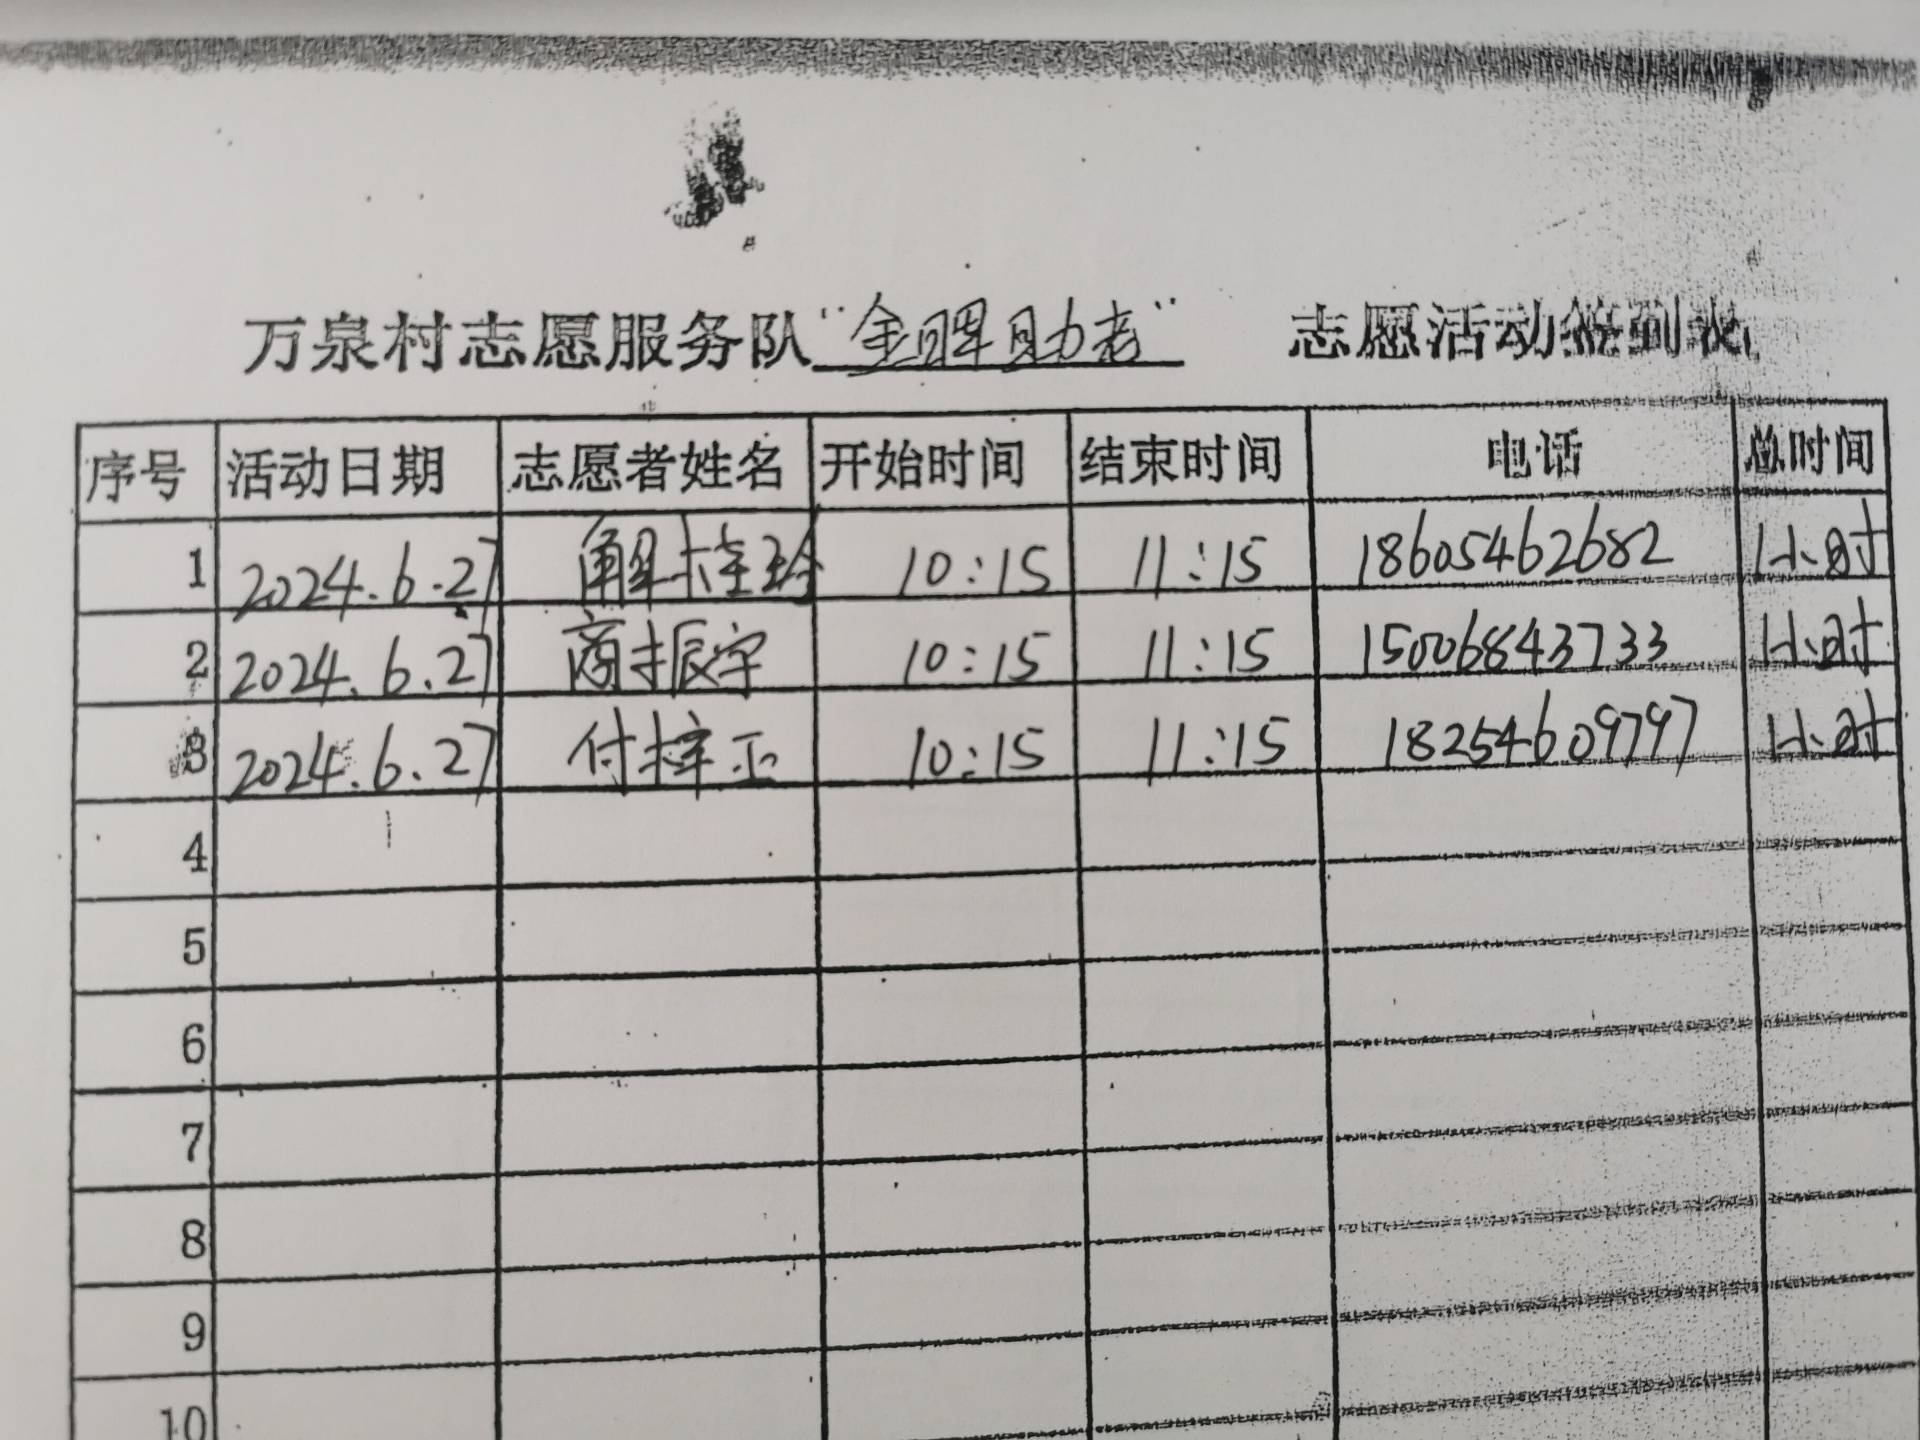 万泉村志愿服务队“金晖助老” 志愿活动签到表
序号 活动日期 志愿者姓名 开始时间 结束时间 电话 总时间
1 2024.6.27 解桂玲 10:15 11:15 18605462682 1小时
2 2024.6.27 商振宇 10:15 11:15 15006843733 1小时
3 2024.6.27 付梓玉 10:15 11:15 18254609797 1小时
4
5
6
7
8
9
10